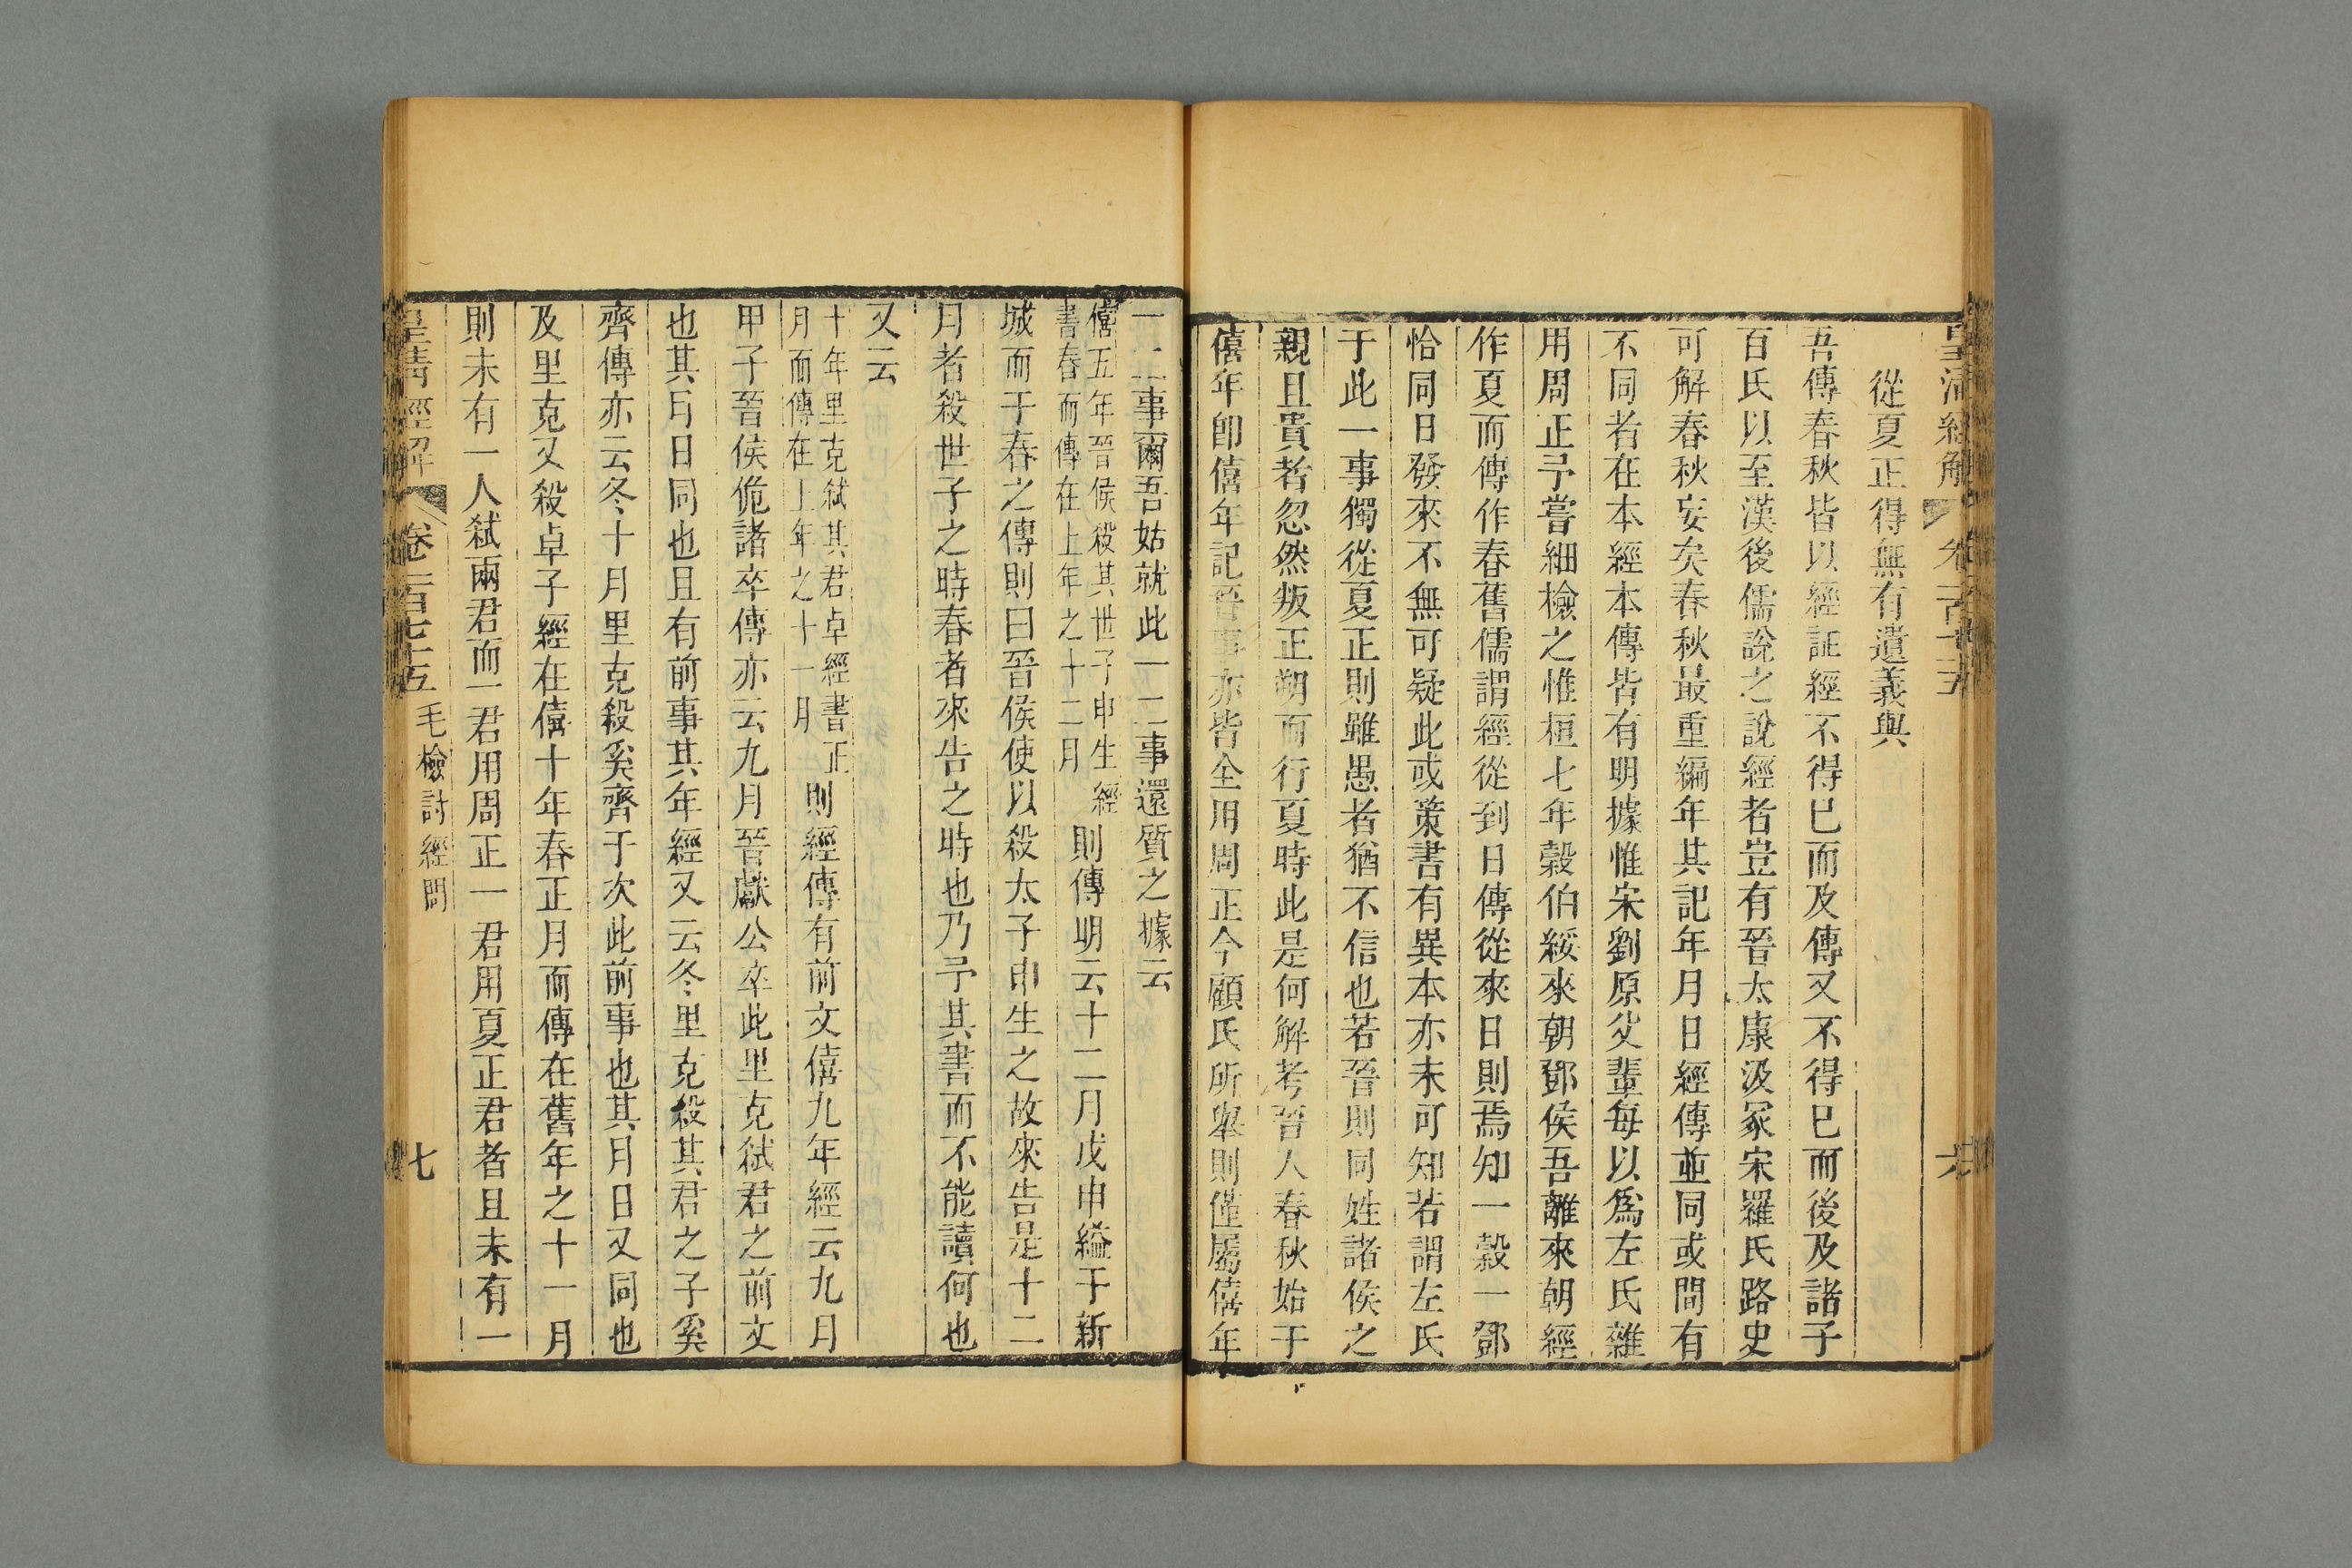 皇清經解 卷一百七十五 六
從夏正得無有遺義與
吾傳春秋皆以經証經不得已而及傳又不得已而後及諸子
百氏以至漢後儒說之說經者豈有晉太康汲冢宋羅氏路史
可解春秋妄矣春秋最重編年其記年月日經傳並同或間有
不同者在本經本傳皆有明據惟宋劉原父輩每以爲左氏雜
用周正予嘗細檢之惟桓七年穀伯綏來朝鄧侯吾離來朝經
作夏而傳作春舊儒謂經從到日傳從來日則焉知一穀一鄧
恰同日發來不無可疑此或策書有異本亦未可知若謂左氏
于此一事獨從夏正則雖愚者猶不信也若晉則同姓諸侯之
親且貴者忽然叛正朔而行夏時此是何解考晉人春秋始于
僖年卽僖年記晉事亦皆全用周正今顧氏所舉則僅屬僖年
一二事爾吾姑就此一二事還質之據云
僖五年晉侯殺其世子申生經
書春而傳在上年之十二月
則傳明云十二月戊申縊于新
城而于春之傳則曰晉侯使以殺太子申生之故來告是十二
月者殺世子之時春者來告之時也乃予其書而不能讀何也
又云
十年里克弑其君卓經書正
月而傳在上年之十一月
則經傳有前文僖九年經云九月
甲子晉侯佹諸卒傳亦云九月晉獻公卒此里克弑君之前文
也其月日同也且有前事其年經又云冬里克殺其君之子奚
齊傳亦云冬十月里克殺奚齊于次此前事也其月日又同也
及里克又殺卓子經在僖十年春正月而傳在舊年之十一月
則未有一人弑兩君而一君用周正一君用夏正君者且未有一
皇清經解 卷一百七十五 毛檢討經問 七